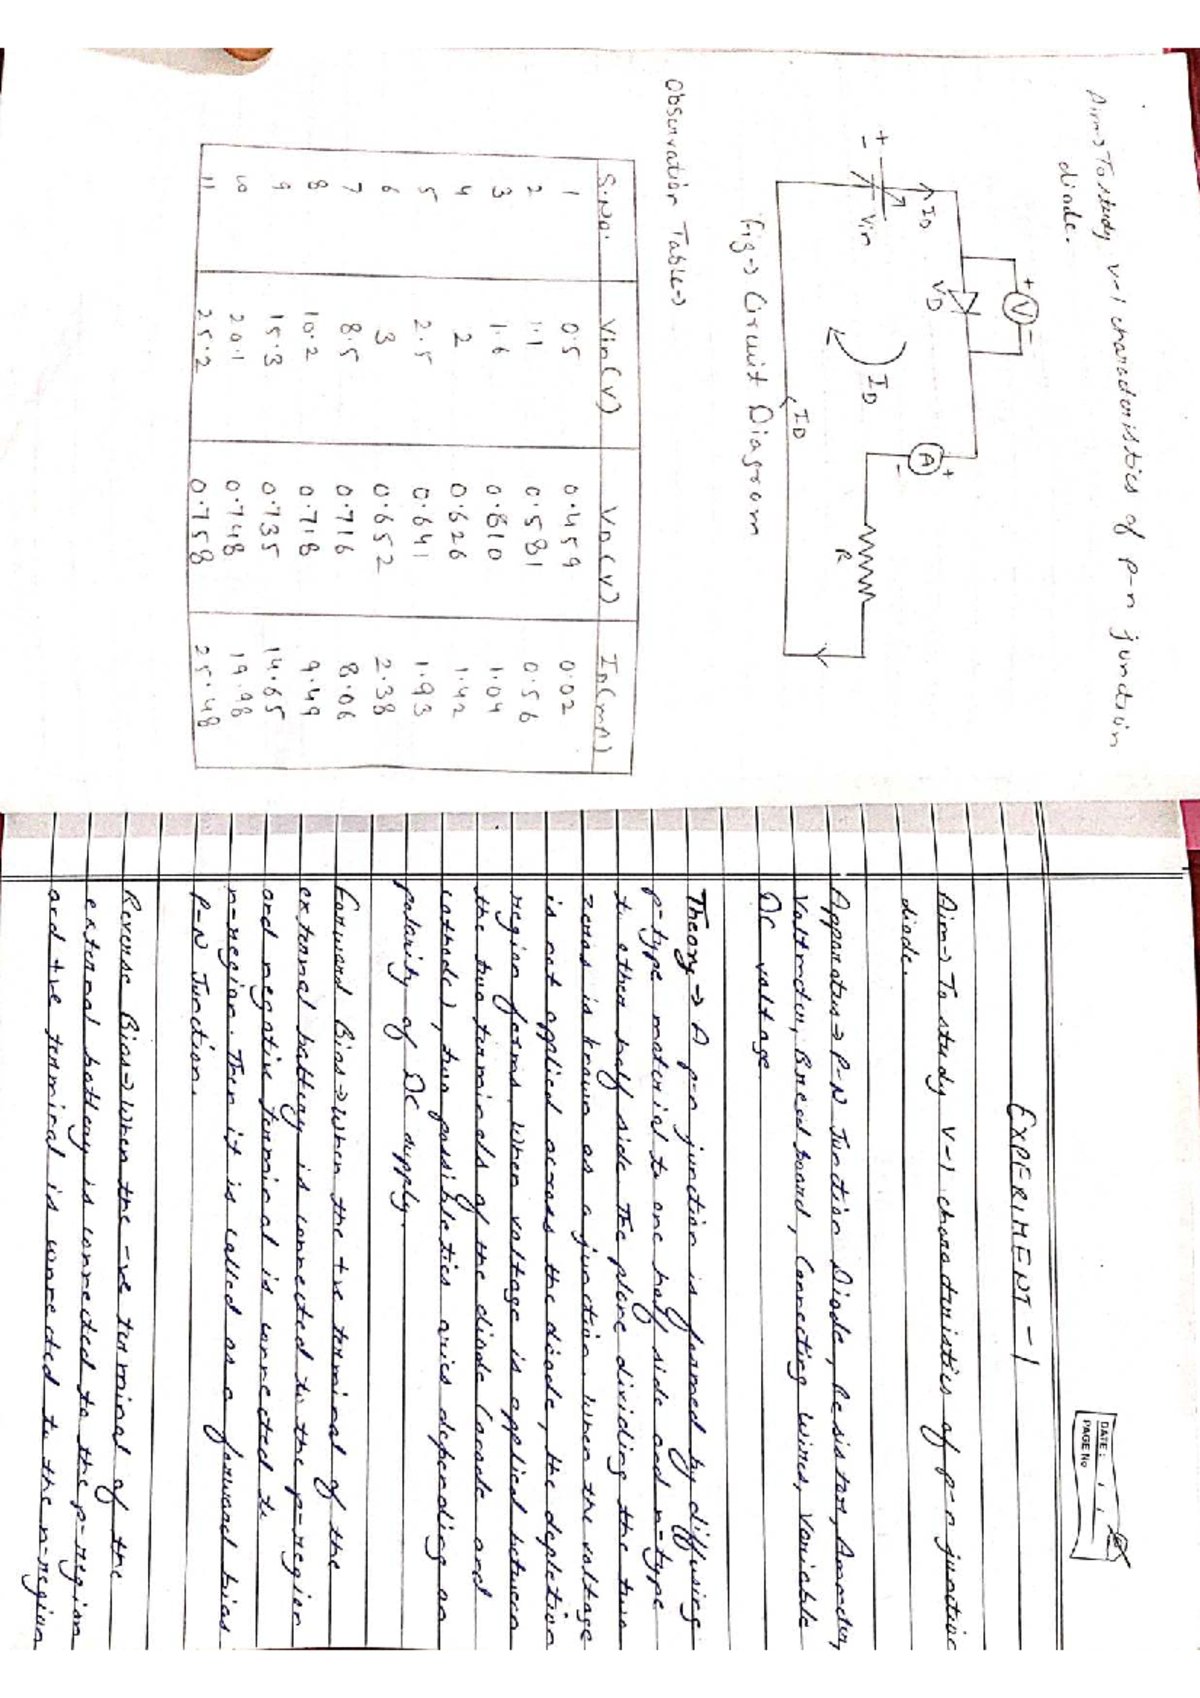 Aim→ To study v-1 characteristics of p-n junction
diode.
V
+
-
VD
ID
ID
A
+
-
R
+
-
Vin
ID
Fig→ Circuit Diagram
Observation Table→
S.No. Vin(V) VD(V) ID(mA)
1 0.5 0.459 0.02
2 1.1 0.581 0.56
3 1.6 0.810 1.04
4 2 0.626 1.42
5 2.5 0.641 1.93
6 3 0.652 2.38
7 8.5 0.716 8.06
8 10.2 0.718 9.49
9 15.3 0.735 14.65
10 20.1 0.748 19.98
11 25.2 0.758 25.48
DATE:
PAGE No
EXPERIMENT-1
Aim→ To study V-1 characteristics of p-n junction
diode.
Apparatus→ P-N Junction Diode, Resistor, Ammeter,
Voltmeter, Breed board, Connecting Wires, Variable
DC voltage.
Theory→ A p-n junction is formed by diffusing
p-type material to one half side and n-type
to other half side. The plane dividing the two
zones is known as a junction. When the voltage
is not applied across the diode, the depletion
region forms. When voltage is applied between
the two terminals of the diode (anode and
cathode), two possibleties aries depending on
polarity of DC supply.
Forward Bias→ When the +ve terminal of the
external battery is connected to the p-region
and negative terminal is connected to
n-region. Then it is called as a forward bias
P-N Junction.
Reverse Bias→ When the -ve terminal of the
external battery is connected to the p-region
and +ve terminal is connected to the n-region